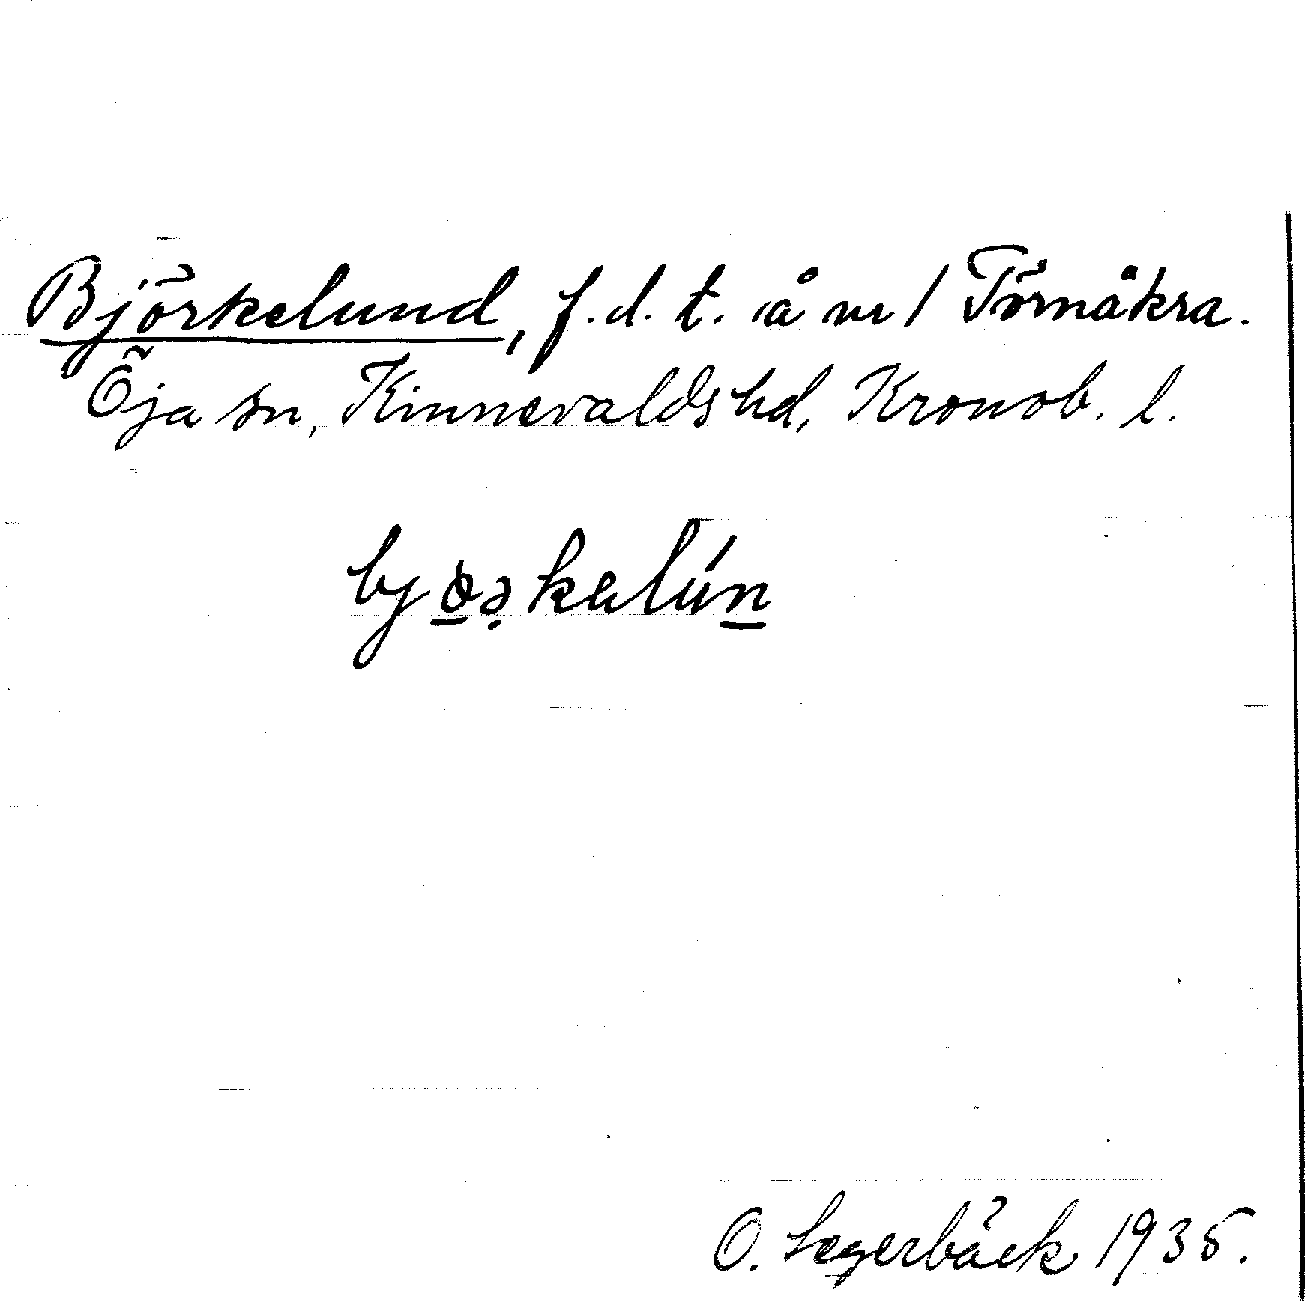 Björkelund, f.d.t. å nr 1 Törnåkra.
Öja sn, Kinnevalds hd, Kronob. l.
O. Segerbäck 1935.